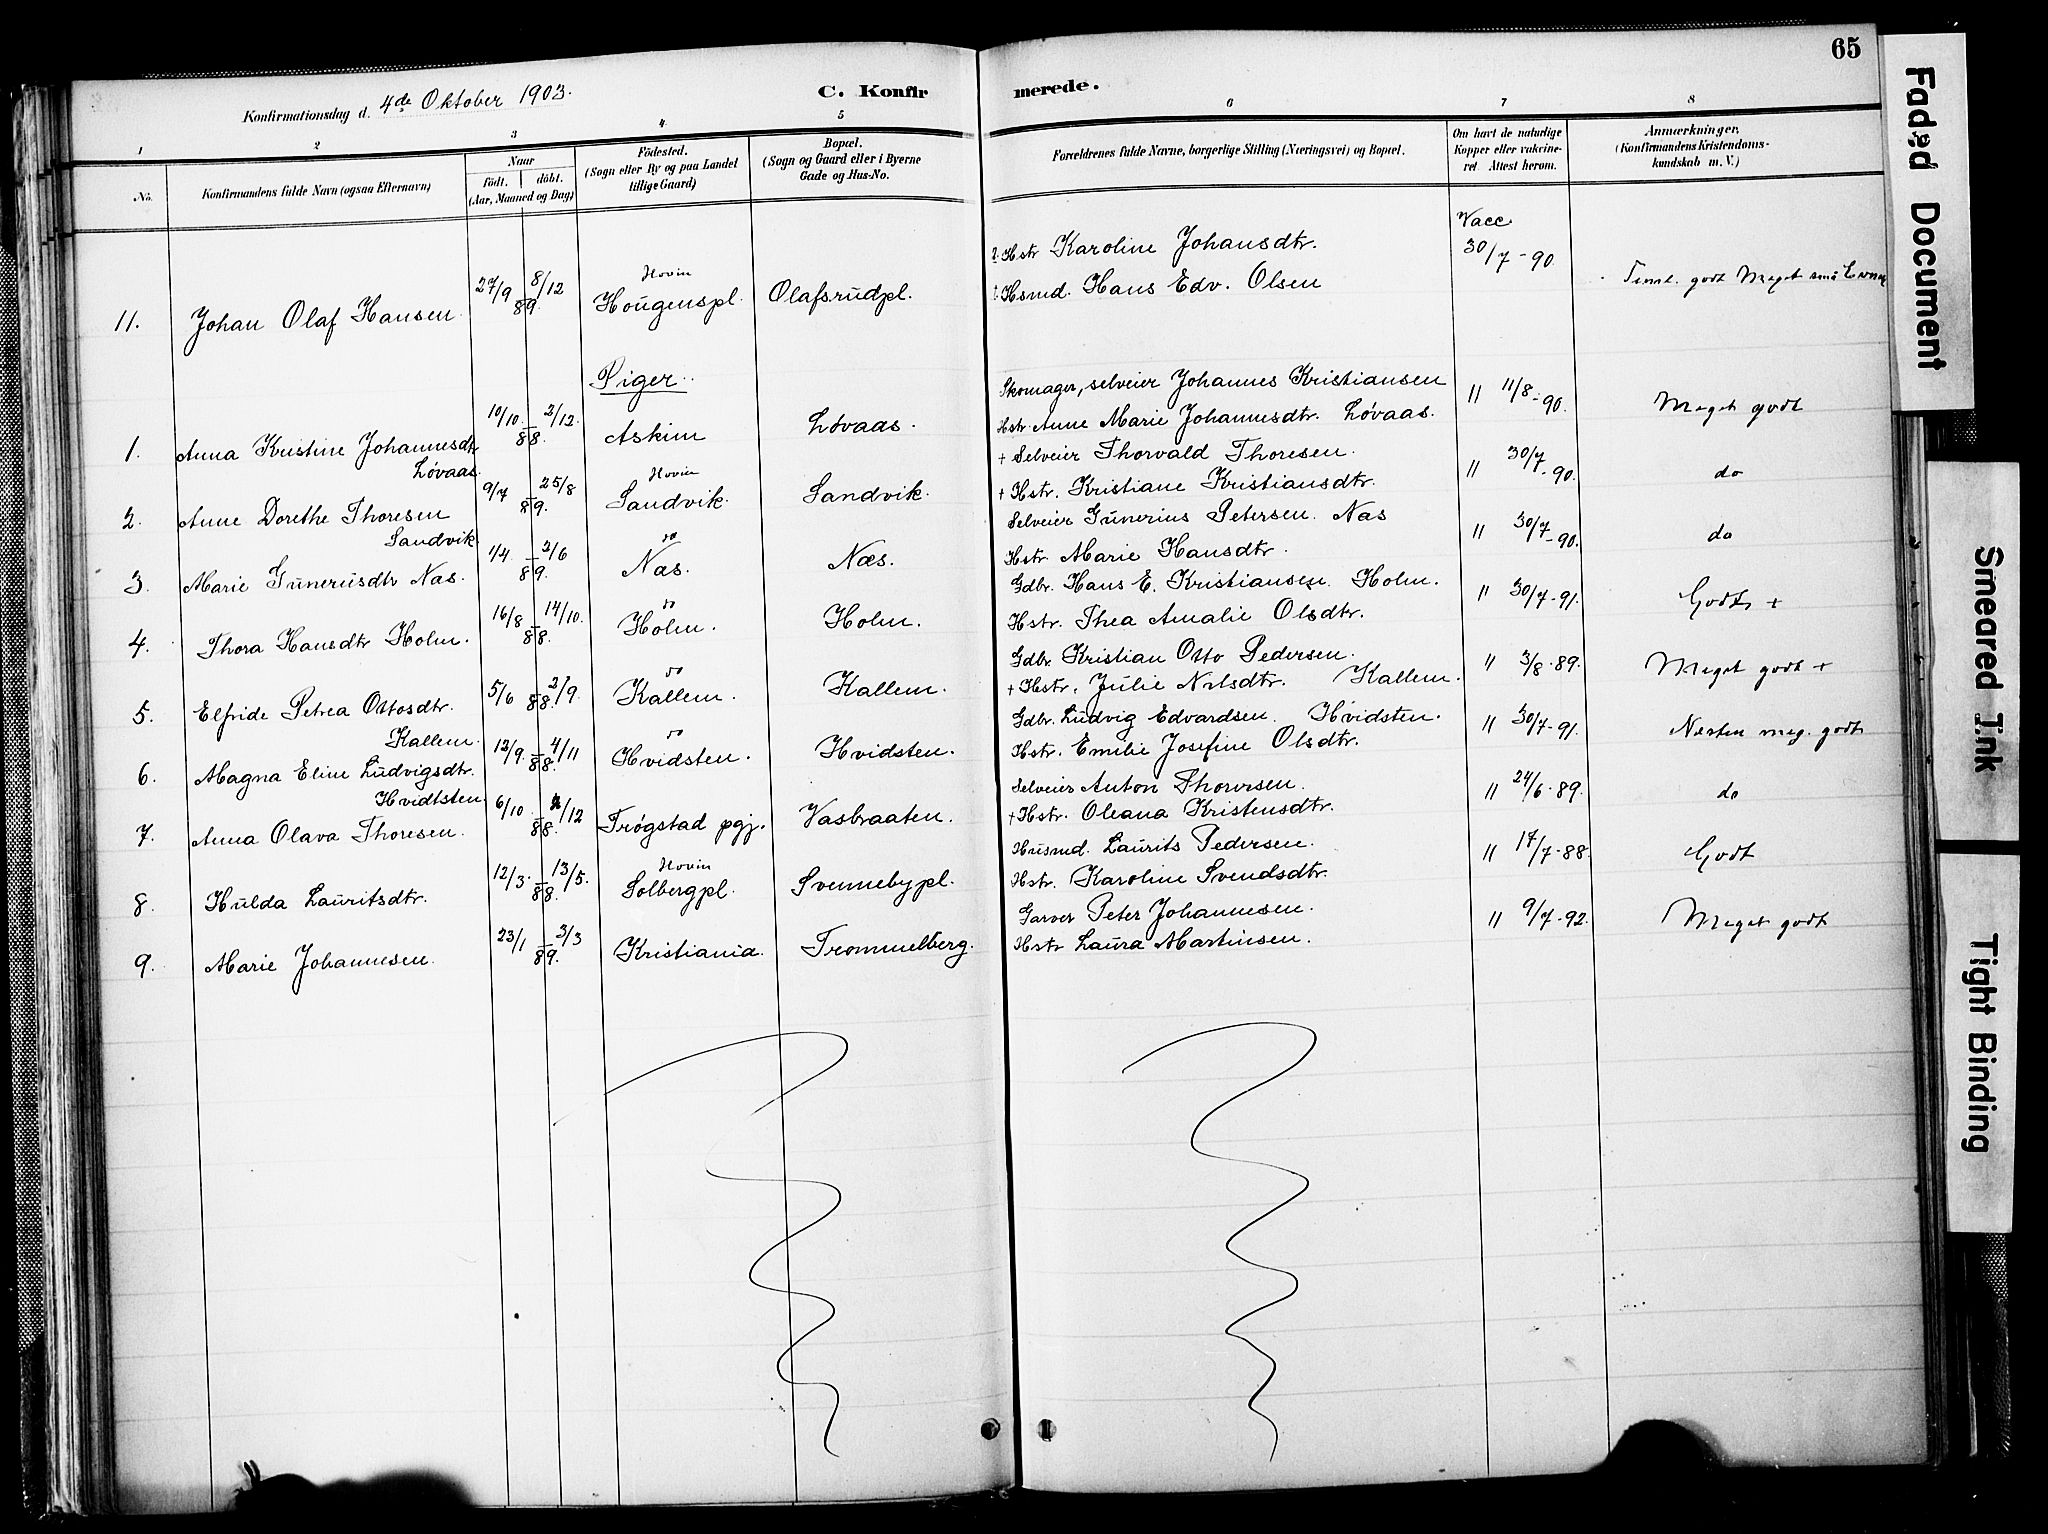 65
Konfirmationsdag d. 4de Oktober 1903.
C. Konfirmerede.
1 2 3 4. 5 6 7 8
No. Konfirmandens fulde Navn (ogsaa Efternavn) Naar født. døbt. (Aar, Maaned og Dag) Fødested. (Sogn eller By og paa Landet tillige Gaard) Bopæl. (Sogn og Gaard eller i Byerne Gade og Hus-No. Forældrenes fulde Navne, borgerlige Stilling (Næringsvei) og Bopæl. Om havt de naturlige Kopper eller vakcineret Attest herom. Anmærkninger. (Konfirmandens Kristendomskundskab m. V.)
11. Johan Olaf Hansen 27/9 8/12 89. Hovin Hougenspl. Olafsrudpl. Hstr Karoline Johansdtr. Vacc 30/7-90
Hsmd. Hans Edv. Olsen godt Meget små
Piger.
1. Anna Kristine Johannesdtr Løvaas. 10/10. 2/12. 88. Askim Løvaas. Skomager, selveier Johannes Kristiansen " 11/8-90. Meget godt
Hstr. Anne Marie Johannesdtr. Løvaas.
2. Anne Dorethe Thoresen Sandvik 9/7 25/8 89. Hovin Sandvik. Sandvik. + Selveier Thorvald Thoresen. " 30/7-90. do
+ Hstr. Kristiane Kristiansdtr.
3. Marie Gunerusdtr Næs. 1/4. 2/6 89. do Næs. Næs. Selveier Gunerius Petersen. Næs " 30/7-90. do
Hstr. Marie Hansdtr.
4. Thora Hansdtr Holm. 16/8 14/10. 88. do Holm. Holm. Gdbr. Hans E. Kristiansen. Holm. " 30/7-91. Godt +
Hstr. Thea Amalie Olsdtr.
5. Elfride Petrea Ottosdtr. Kallem. 5/6 2/9. 88. do Kallem. Kallem. Gdbr. Kristian Otto Pedersen. " 3/8-89. Meget godt +
+ Hstr. Julie Nilsdtr. Kallem.
6. Magna Eline Ludvigsdtr. Hvidtsten. 12/9. 4/11 88. do Hvidsten. Hvidsten. Gdbr. Ludvig Edvardsen. Hvidsten. " 30/7-91. Næsten meg. godt
Hstr. Emilie Josefine Olsdtr.
7. Anna Olava Thoresen. 6/10 /12 88. Trøgstad pgj. Vasbraaten. Selveier Anton Thoresen. " 24/6-89. do
+ Hstr. Oleana Kristensdtr.
8. Hulda Lauritsdtr. 12/3. 13/5. 88. Hovin Solbergpl. Svennebypl. Husmd. Laurits Pedersen. " 17/7-88. Godt
Hstr. Karoline Svendsdtr.
9. Marie Johannesen. 23/1 3/3 89. Kristiania. Trommelberg. Garver Peter Johannesen. " 9/7-92. Meget godt
Hstr Laura Martinsen.
Faded Document
Smeared Ink
Tight Binding